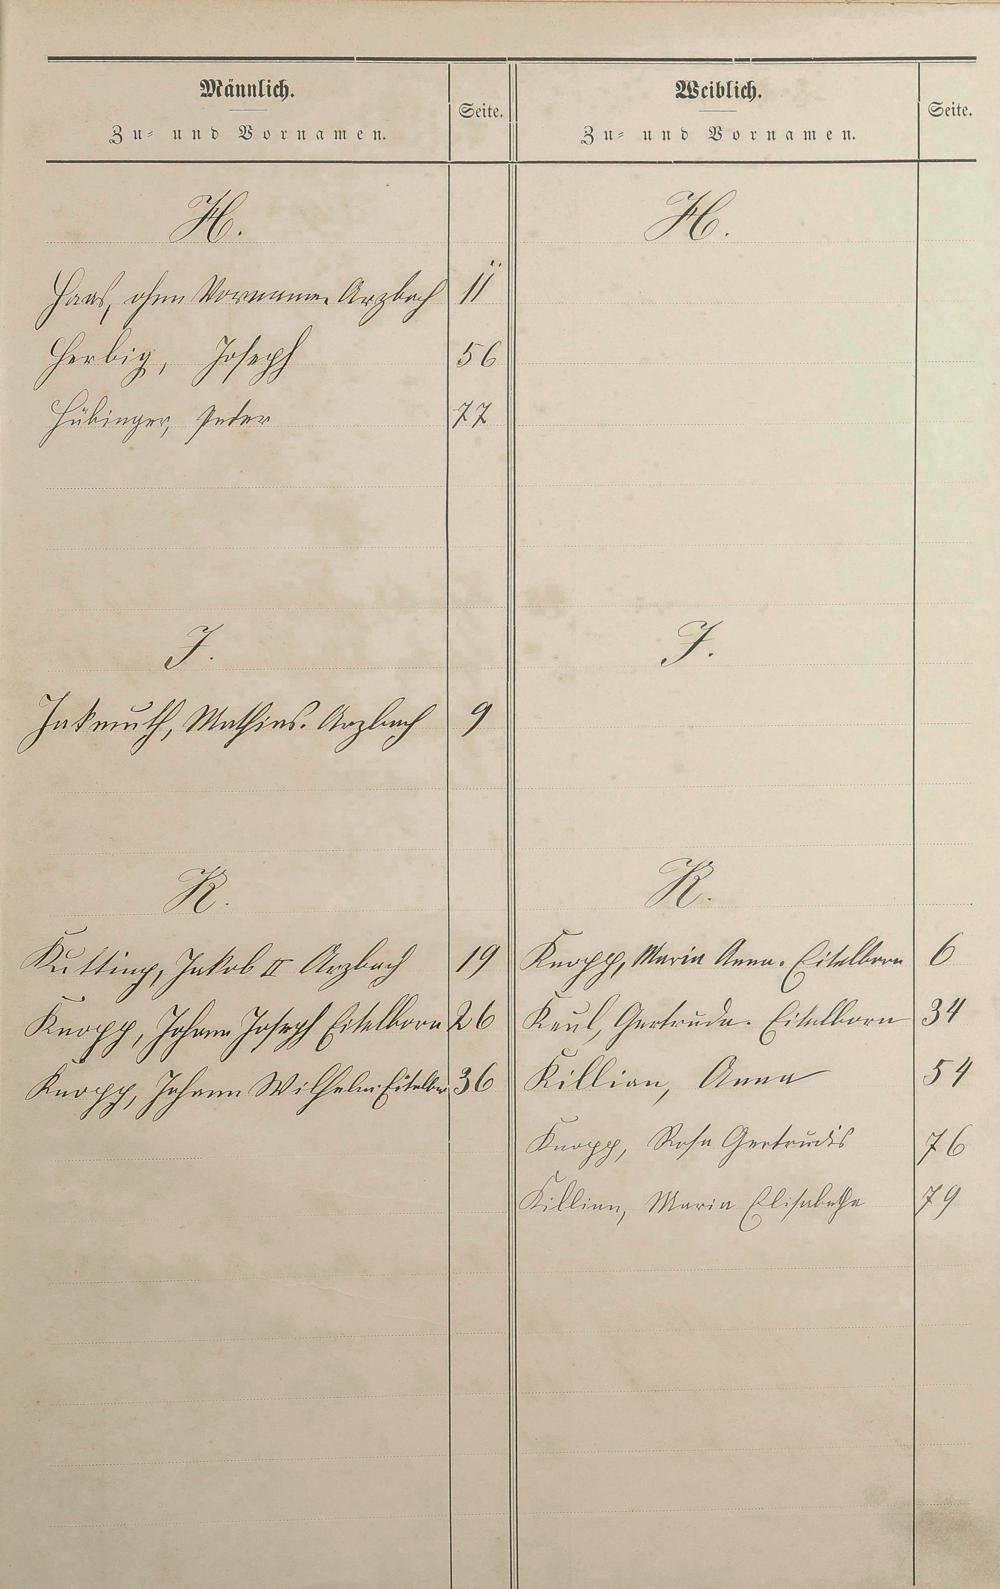 Männlich.
Zu- und Vornamen.
Seite.
H.
Haas, ohne Vorname. Arzbach 11
Herbig, Joseph 56
Hübinger, Peter 77
J.
Jakmuth, Mathias. Arzbach 9
K.
Kutting, Jakob II Arzbach 19
Knopp, Johann Joseph Eitelborn 26
Knopp, Johann Wilhelm. Eitelbor 36
Weiblich.
Zu- und Vornamen.
Seite.
H.
J.
K.
Knopp, Maria Anna. Eitelborn 6
Keul, Gertrude. Eitelborn 34
Killian, Anna 54
Knopp, Rosa Gertrudis 76
Killian, Maria Elisabetha 79